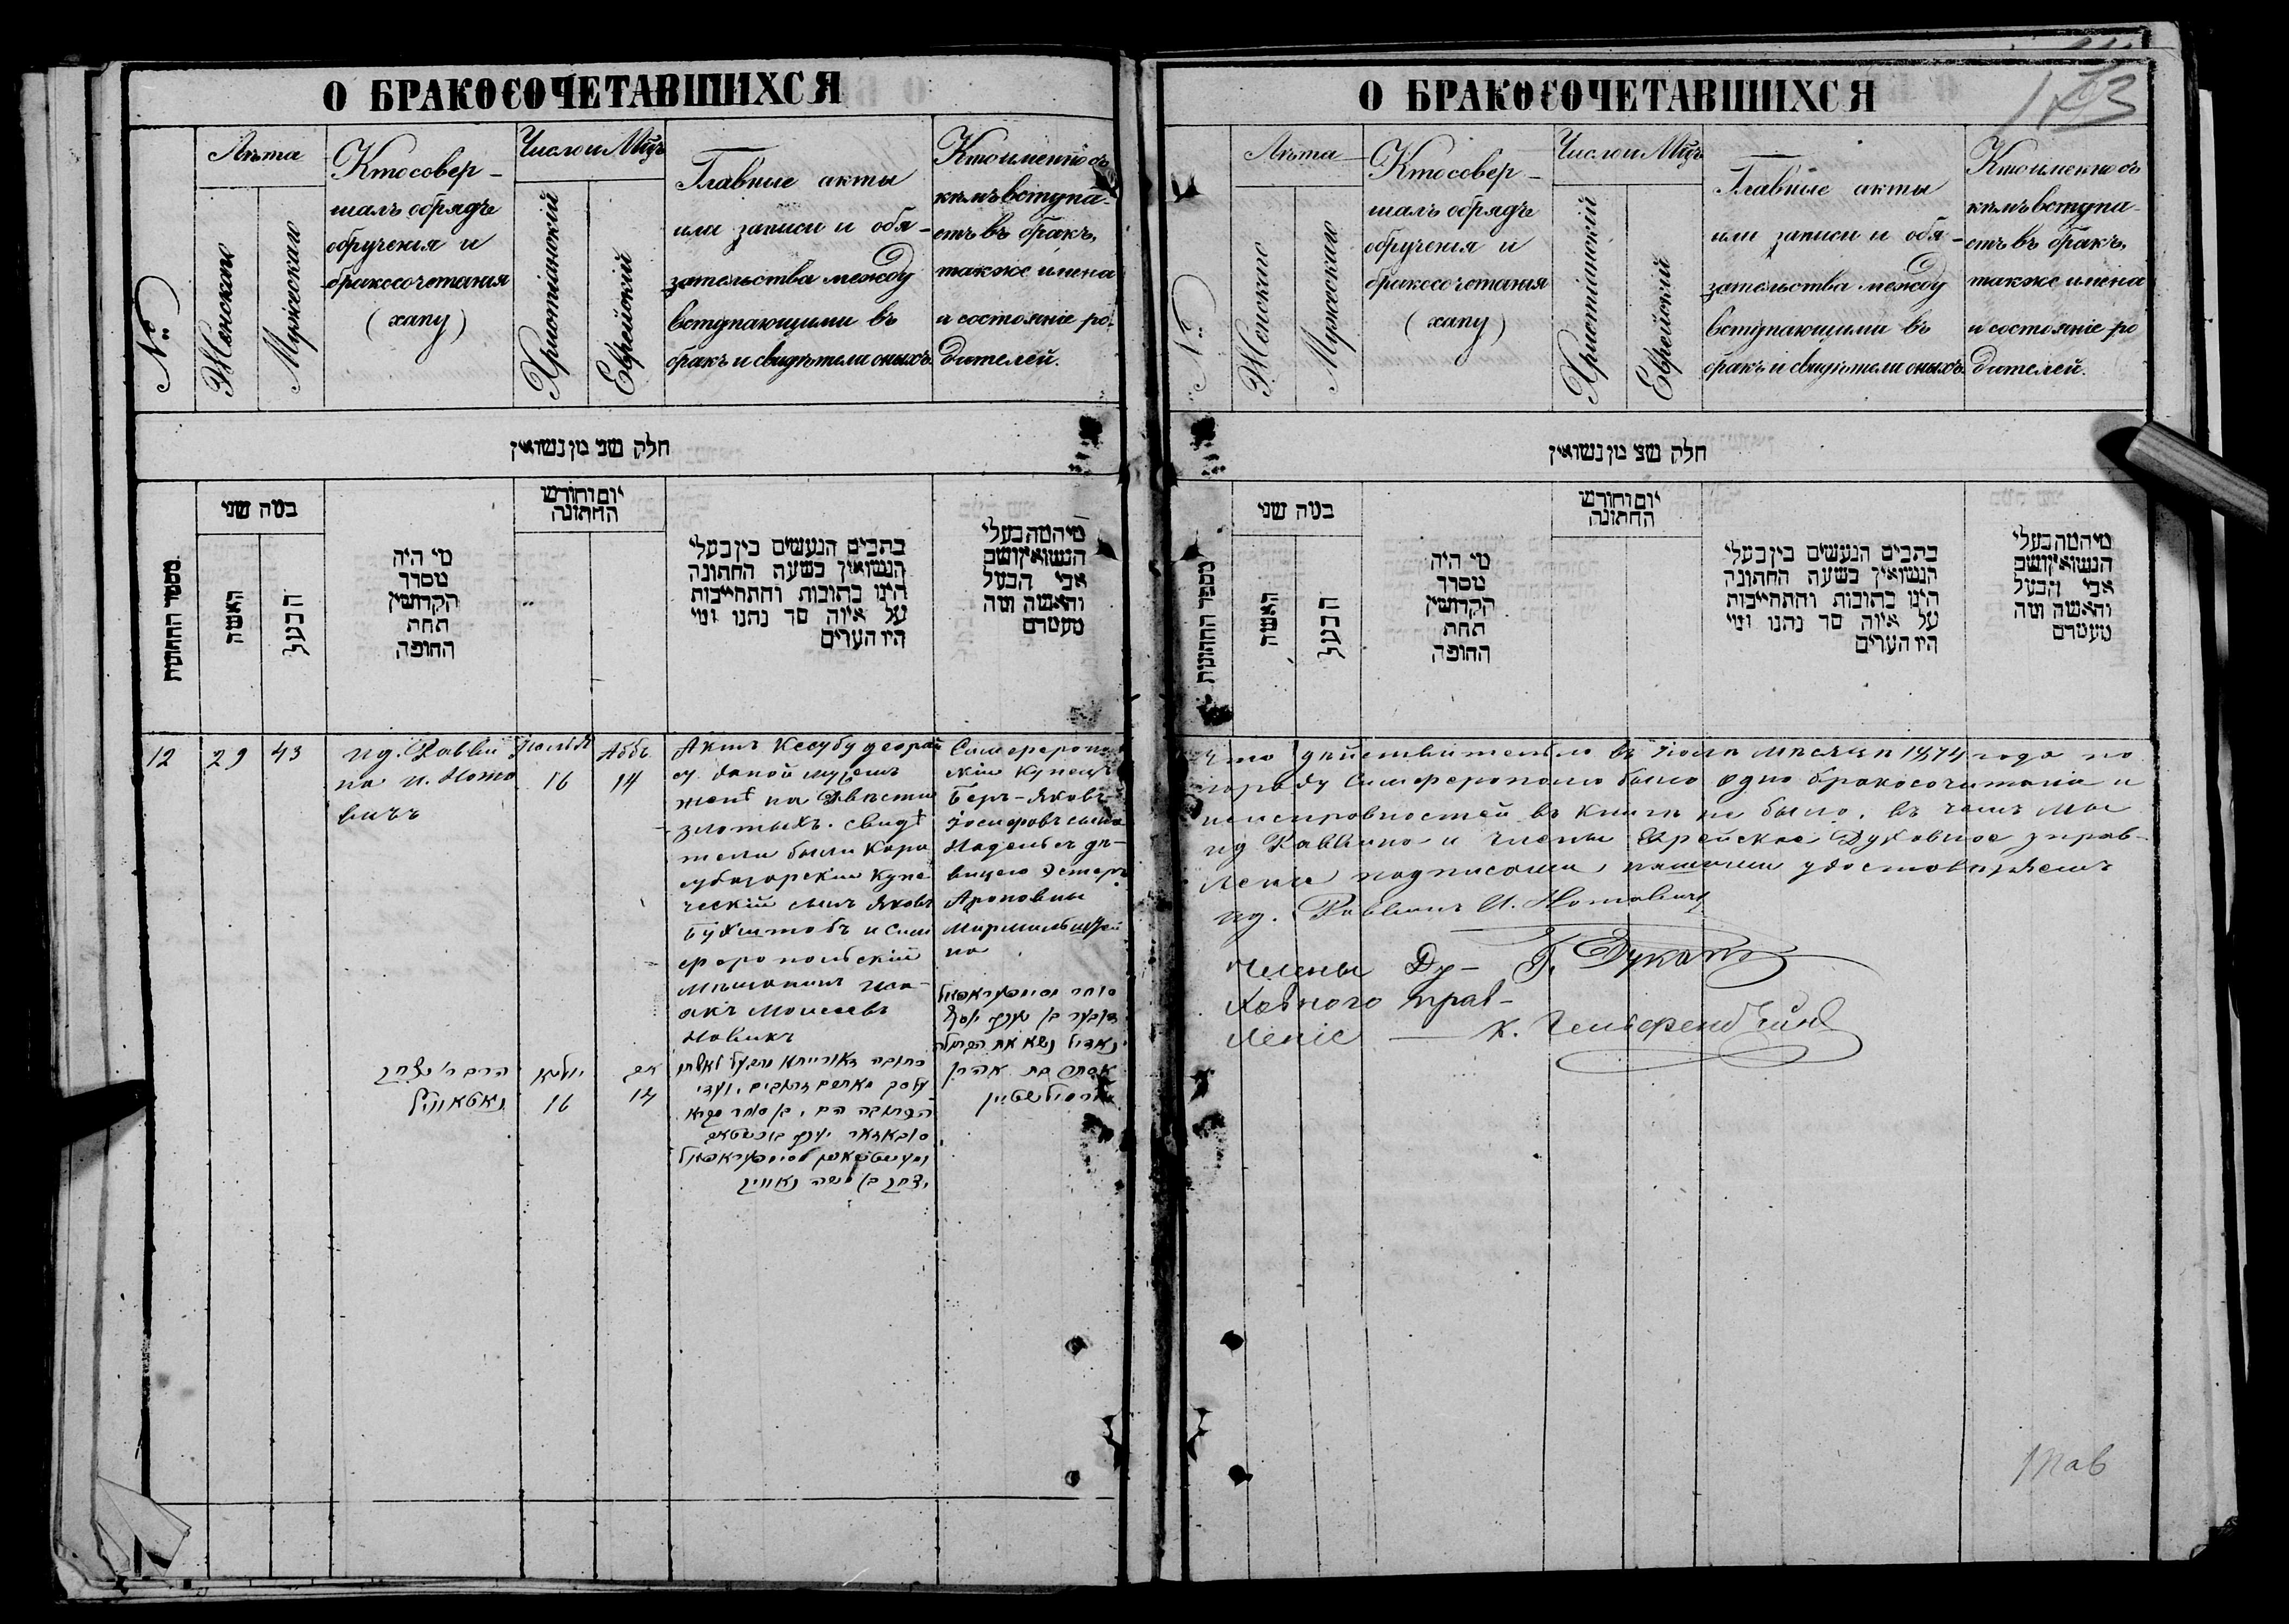 О БРАКОСОЧЕТАВШИХСЯ
№
Лѣта
Женскаго
Мужескаго
Кто совер-
шалъ обрядъ
обрученія и
бракосочетанія
(хапу)
Число и Мцъ
Христіанскій
Еврейскій
Главные акты
или записи и обя-
зательства между
вступающими въ
бракъ и свидѣтели оныхъ.
Кто именно съ
кѣмъ вступа-
етъ въ бракъ,
также имена
и состояніе ро-
дителей.
חלק שני מן נשואין
מספר החתונות
במה שני
האשה
הבעל
מי היה
מסדר
הקדושין
תחת
החופה
יום וחודש
החתונה
כתבים הנעשים בין בעלי
הנשואין בשעת החתונה
היינו כתובות והתחייבות
על איזה סך נתנו ומי
היו העדים
מי המה בעלי
הנשואין ושם
אבי הבעל
והאשה ומה
מעמדם
12
29
43
ид. Равви
на И. Ното
вичъ
Іюля
16
Аббъ
14
Актъ Кесубу деорай
су даной мужемъ
женѣ на Двѣсти
злотыхъ. свидѣ
тели были Кара
субазарскій Купе
ческій сынъ Яковъ
Бухштабъ и Сим
феропольскій
мѣщанинъ Иса-
акъ Моисеевъ
Новикъ
Симферопо
скій Купецъ
Беръ-Яковъ
Іосифовъ сынъ
Надель съ дѣ-
вицею Эстеръ
Ароновны
Мармильштей
на
סוחר סימפעראפאל
דובער בן יעקב יוסף
נאדיל נשא את הבתולה
אסתר בת אהרן
הרב ר׳ יצחק
נאטאוויץ
יוליא
16
אב
14
כתובה דאורייתא
יצחק בן משה נאוויק
О БРАКОСОЧЕТАВШИХСЯ
№
Лѣта
Женскаго
Мужескаго
Кто совер-
шалъ обрядъ
обрученія и
бракосочетанія
(хапу)
Число и Мцъ
Христіанскій
Еврейскій
Главные акты
или записи и обя-
зательства между
вступающими въ
бракъ и свидѣтели оныхъ.
Кто именно съ
кѣмъ вступа-
етъ въ бракъ,
также имена
и состояніе ро
дителей.
חלק שני מן נשואין
מספר החתונות
במה שני
האשה
הבעל
מי היה
מסדר
הקדושין
תחת
החופה
יום וחודש
החתונה
כתבים הנעשים בין בעלי
הנשואין בשעת החתונה
היינו כתובות והתחייבות
על איזה סך נתנו ומי
היו העדים
מי המה בעלי
הנשואין ושם
אבי הבעל
והאשה ומה
מעמדם
Что дѣйствительно въ Іюлѣ мѣсяцѣ 1874 года по
городу Симферополю было одно бракосочитаніе и
неисправностей въ книгѣ не было, въ чемъ мы
ид Раввина и члены Еврейскае Духовное Управ-
леніе подписами нашими удостовѣряемъ
ид. Раввинъ И. Нотовичъ
Члены Ду-
ховного прав-
леніе
Г. Дукатъ